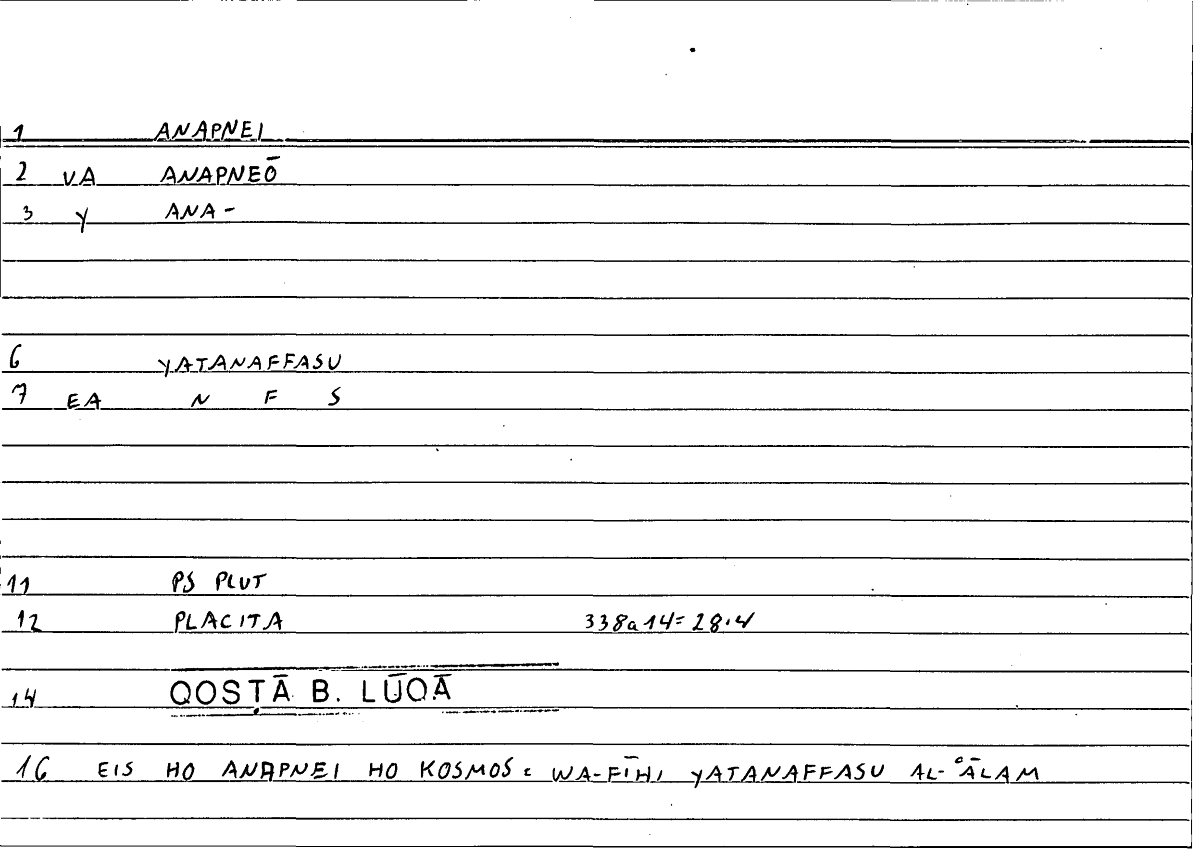 1 ANAPNEI
2 VA ANAPNEŌ
3 Y ANA-
6 YATANAFFASU
7 EA N F S
11 PS PLUT
12 PLACITA 338a14=28.4
14 QOSṬĀ B. LŪQĀ
16 EIS HO ANAPNEI HO KOSMOS : WA-FĪHI YATANAFFASU AL-ʿĀLAM